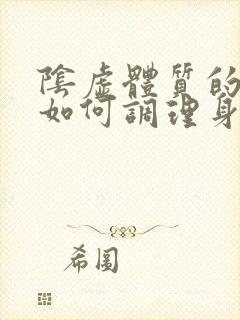 陰虛體質的
如何調理身
希圖